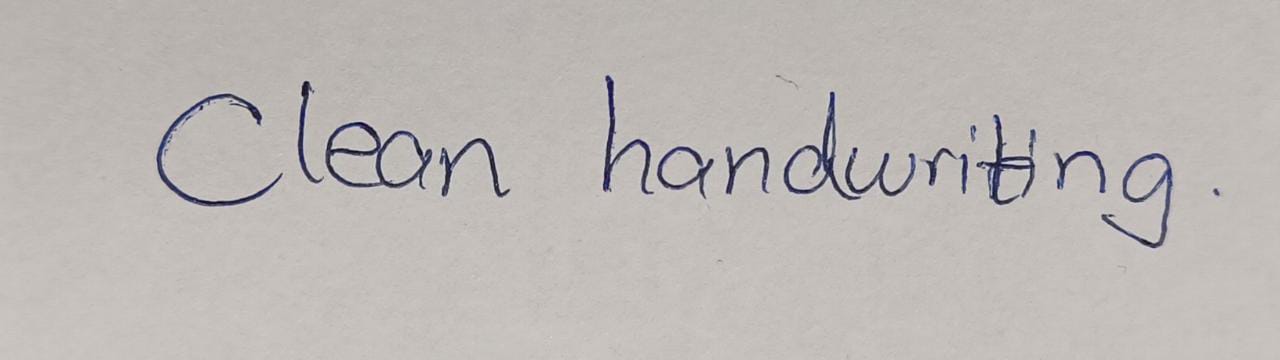 Clean handwriting.